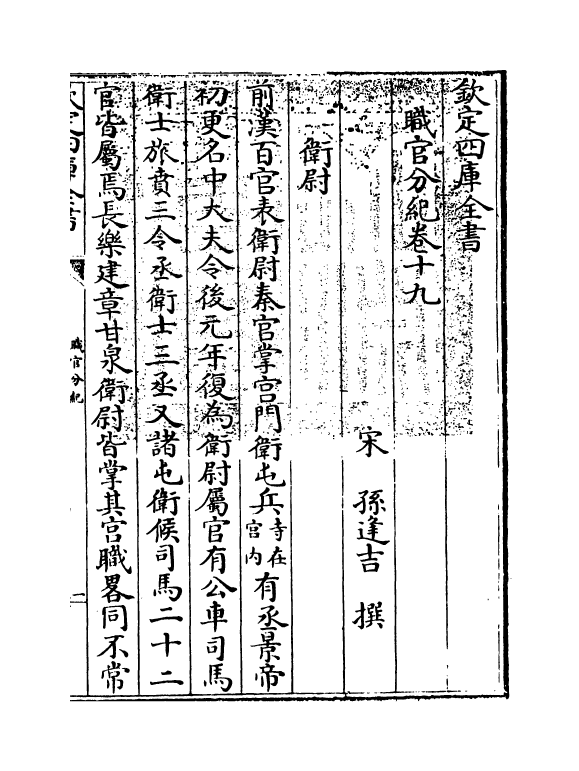 欽定四庫全書
職官分紀卷十九
宋 孫逢吉 撰
衛尉
前漢百官表衛尉秦官掌宫門衛屯兵寺在宫内有丞景帝
初更名中大夫令後元年復為衛尉屬官有公車司馬
衛士旅賁三令丞衛士三丞又諸屯衛候司馬二十二
官皆屬焉長樂建章甘泉衛尉皆掌其宫職畧同不常
欽定四庫全書
職官分紀